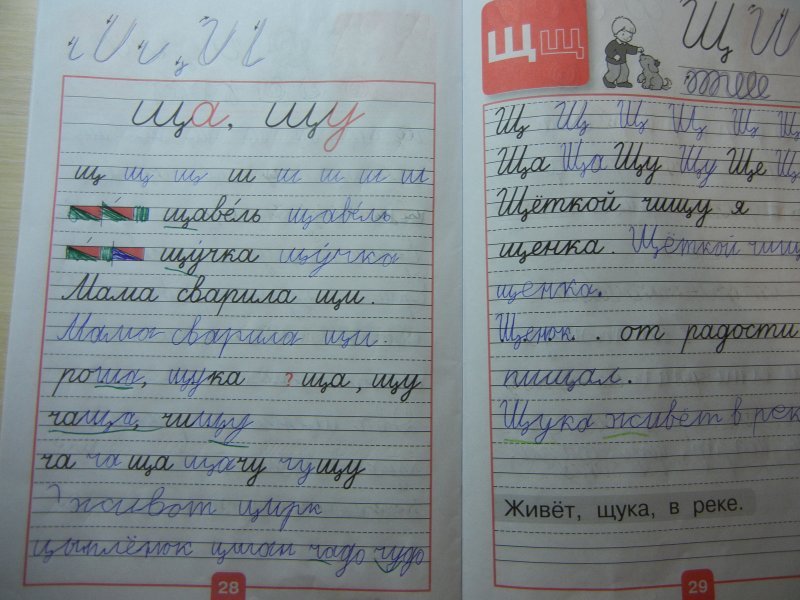 ща, щу
щ щ щ ш ш ш ш ш
щаве́ль щаве́ль
щу́чка щу́чка
Мама сварила щи.
Мама сварила щи.
роща, щука ? ща, щу
чаща, чищу
ча ча ща ща чу чу щу
живот цирк
цыплёнок цыган чадо чудо
28
Щ щ
Щ
Щ Щ Щ Щ Щ Щ
Ща Ща Щу Щу Ще Щ
Щёткой чищу я
щенка. Щёткой чищ
щенка.
Щенок . от радости
пищал.
Щука живёт в рек
Живёт, щука, в реке.
29